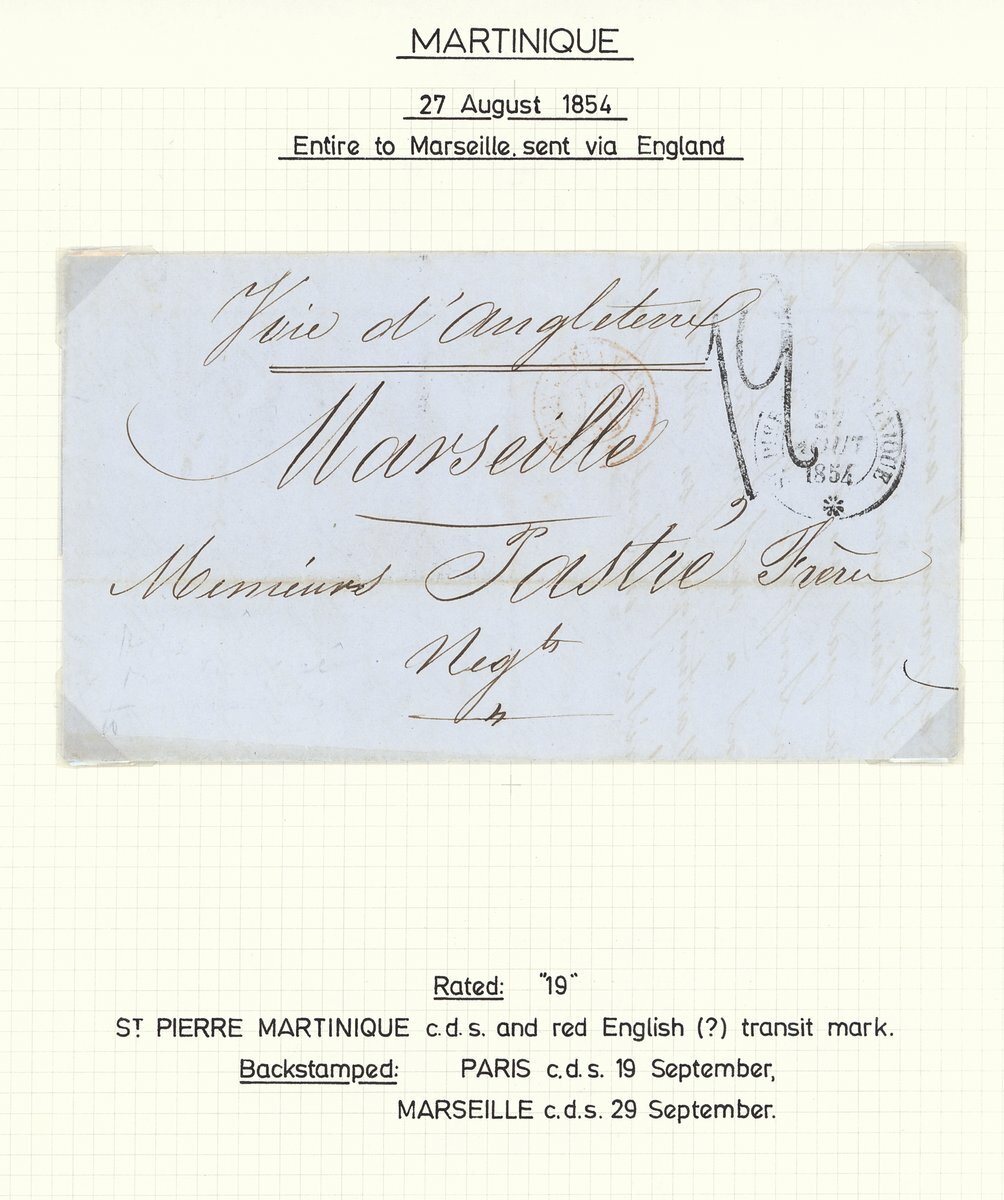 MARTINIQUE
27 August 1854
Entire to Marseille, sent via England
Voie d'Angleterre
Marseille
19
MARTINIQUE
27
AOUT
1854
Messieurs Pastré Frères
Negts
Rated: "19"
ST PIERRE MARTINIQUE c.d.s. and red English (?) transit mark.
Backstamped: PARIS c.d.s. 19 September,
MARSEILLE c.d.s. 29 September.